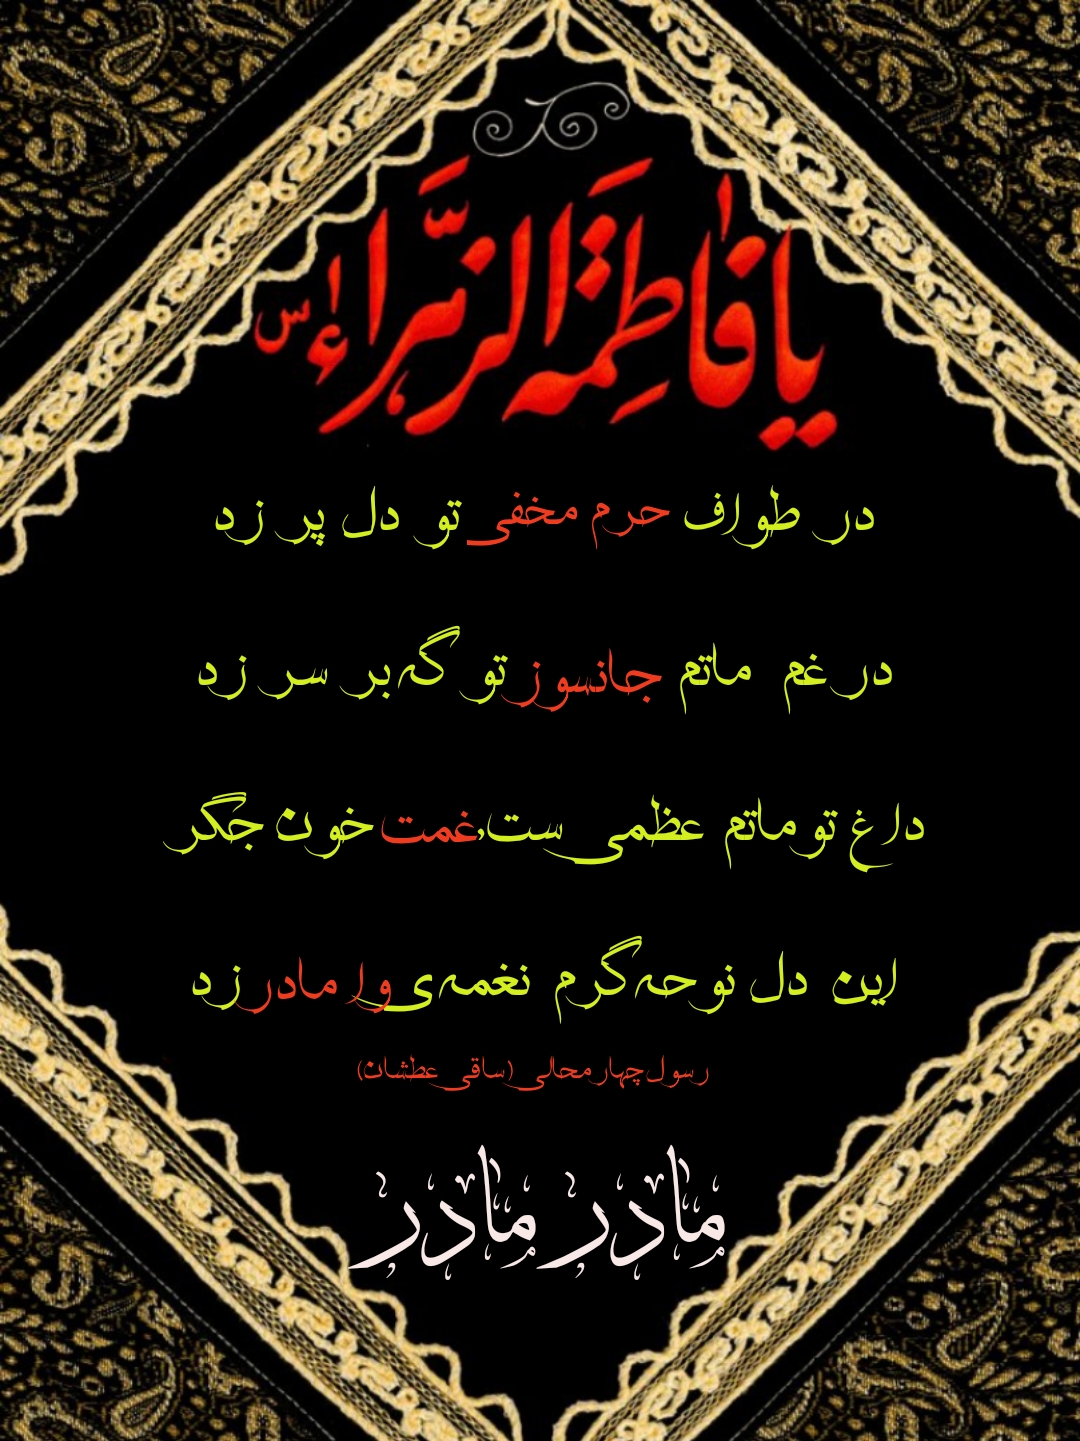 یا فاطِمَة الزَّهراء س
در طواف حرم مخفی تو دل پر زد
در غم ماتم جانسوز تو گه بر سر زد
داغ تو ماتم عظمی ست،غمت خون جگر
این دل نوحه گرم نغمه ی وا مادر زد
رسول چهارمحالی (ساقی عطشان)
مادر مادر